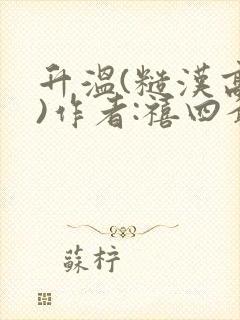 升溫(糙漢高
)作者:禧四
蘇梓